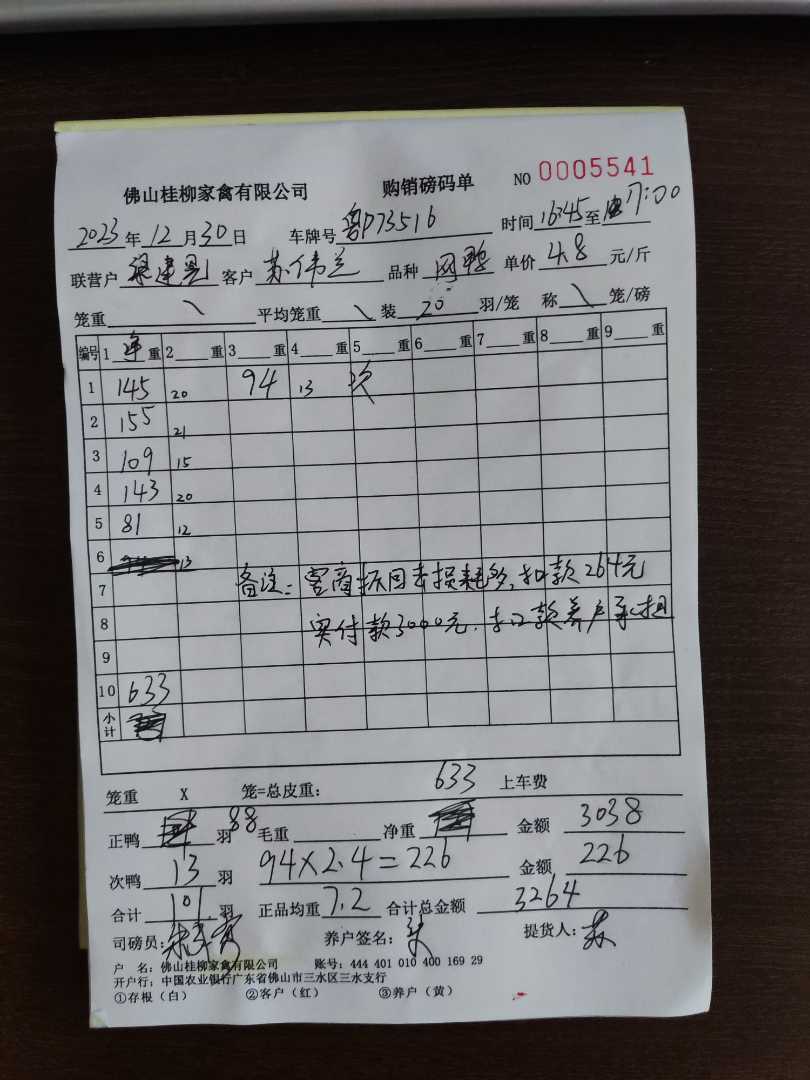 佛山桂柳家禽有限公司 购销磅码单 NO 0005541
2023年12月30日 车牌号 P73516 时间16:45至17:00
联营户 客户 苏伟兰 品种 单价 4.8 元/斤
笼重 平均笼重 装 20 羽/笼 称 笼/磅
编号 1 净 重 2 重 3 重 4 重 5 重 6 重 7 重 8 重 9 重
1 145 20 94 13 次
2 155 21
3 109 15
4 143 20
5 81 12
6 13
7 备注:客商反回去损耗多,扣款264元
8 实付款3000元.扣款养户承担
9
10 633
小计
笼重 X 笼=总皮重: 633 上车费
正鸭 羽 88 毛重 净重 金额 3038
次鸭 13 羽 94×2.4=226 金额 226
合计 101 羽 正品均重 7.2 合计总金额 3264
司磅员: 养户签名: 提货人:苏
户 名:佛山桂柳家禽有限公司 账号:444 401 010 400 169 29
开户行:中国农业银行广东省佛山市三水区三水支行
①存根(白) ②客户(红) ③养户(黄)